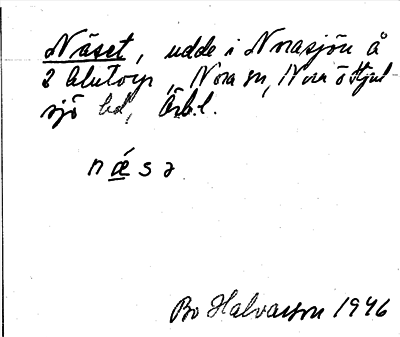 Näset, udde i Norasjön å
2 Alntorp, Nora sn, Nora ö Hjul
sjö bd, Örb.l.
n ǽ s ə
Bo Halvarson 1946